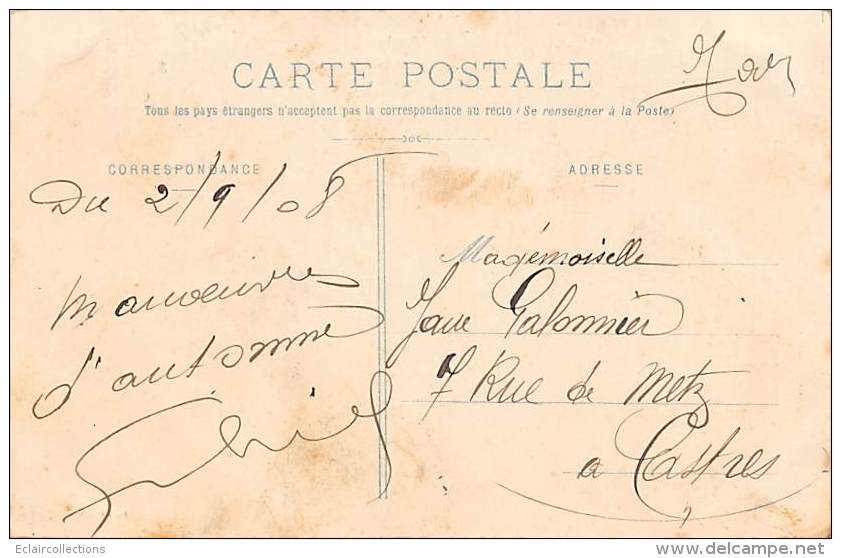 CARTE POSTALE
Tous les pays étrangers n'acceptent pas la correspondance au recto (Se renseigner à la Poste)
CORRESPONDANCE
Du 2/9/08
Manoeuvres
d'automne
ADRESSE
Mademoiselle
Galonnier
7 Rue de Metz
a Castres
Eclaircollections
www.delcampe.net